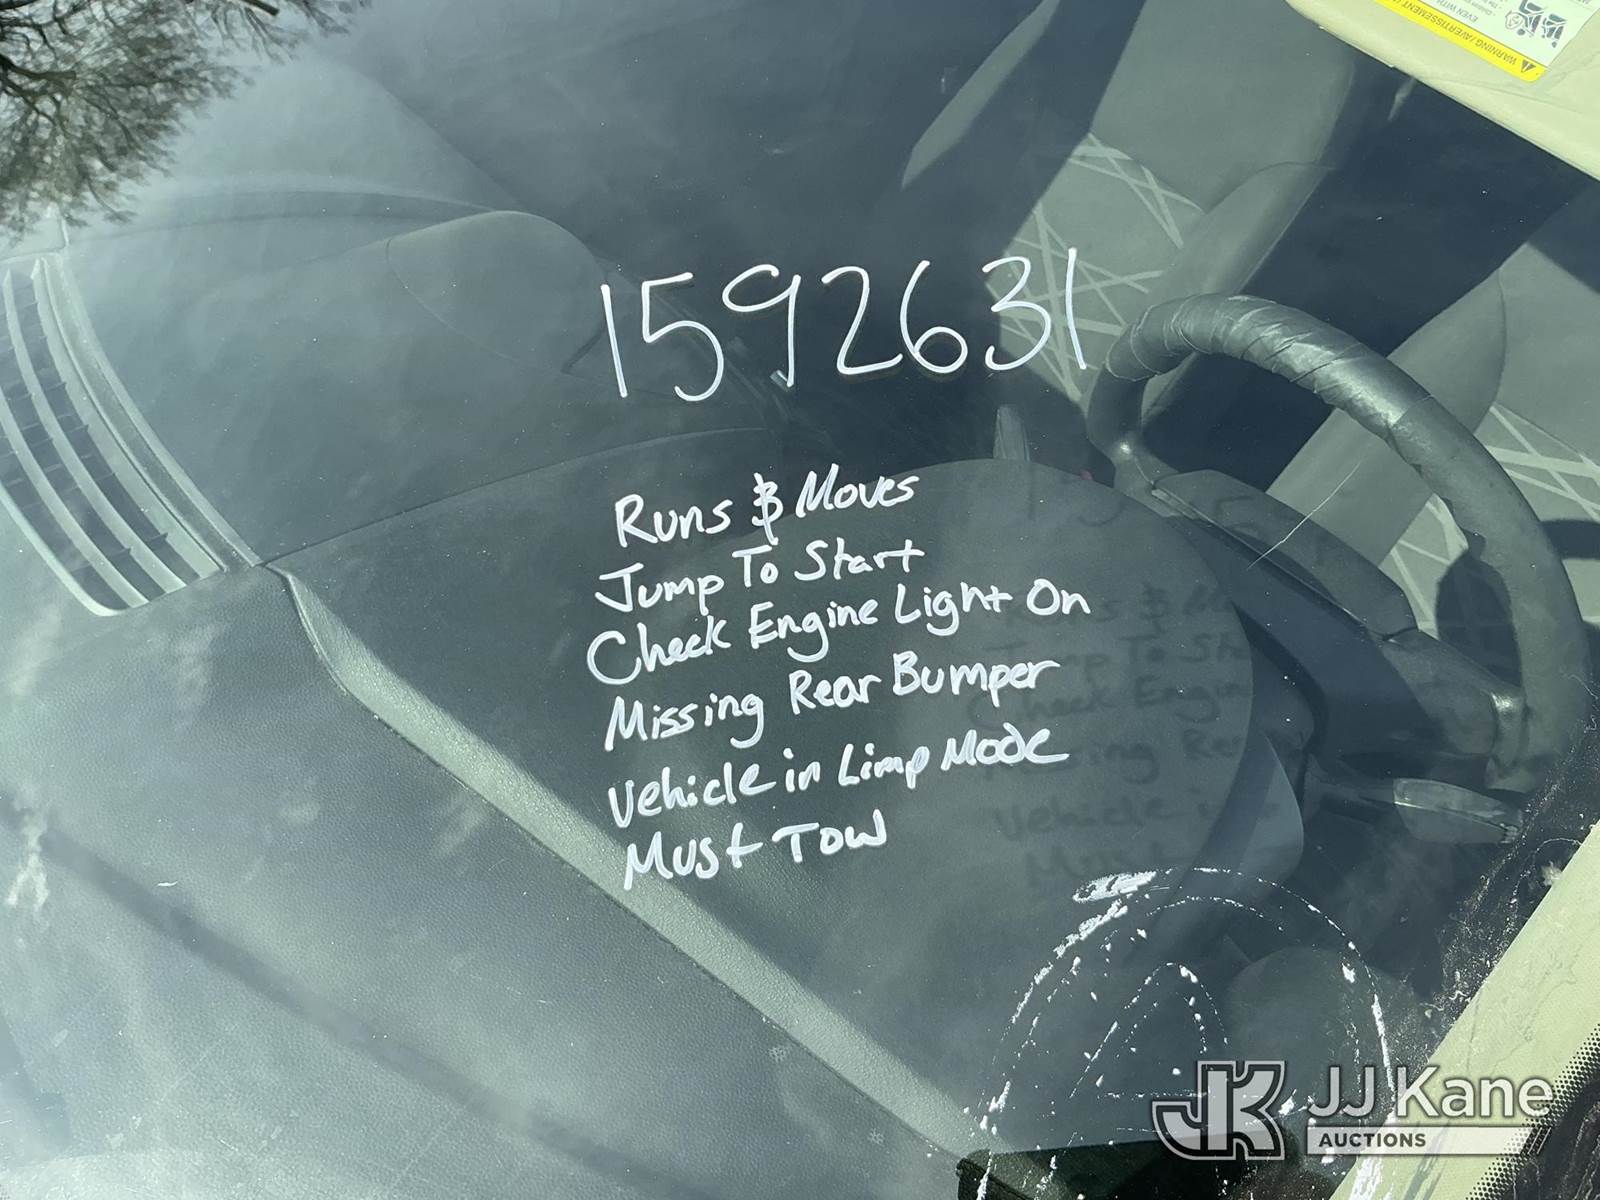 WARNING / AVERTISSEMENT
EVEN WITH
1592631
Runs & Moves
Jump To Start
Check Engine Light On
Missing Rear Bumper
Vehicle in Limp Mode
Must Tow
JK JJ Kane
AUCTIONS